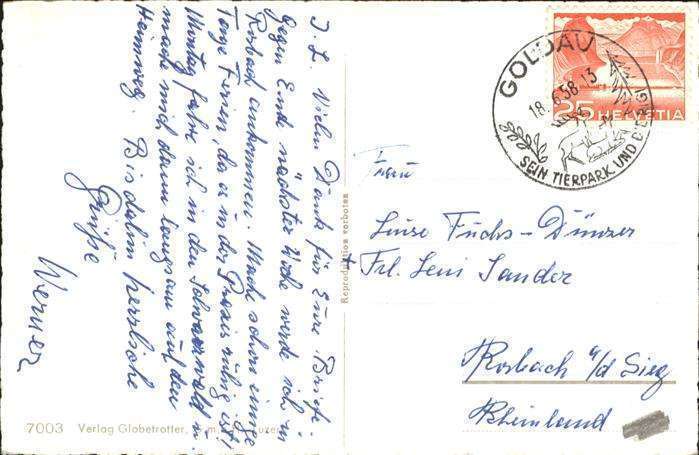 I. L. Vielen Dank für Eure Briefe.
Gegen Ende nächster Woche werde ich in
Rosbach ankommen. Mache schon einige
Tage Ferien, da es in der Praxis ruhig ist.
Montag fahre ich in den Schwarzwald u.
mache mich dann langsam auf den
Heimweg. Bis dahin herzliche
Grüße
Werner
7003 Verlag Globetrotter,
Reproduktion verboten
GOLDAU
18.6.58 13
SEIN TIERPARK UND DER
25 HELVETIA
Frau
Luise Fuchs-Dünzer
+ Frl. Leni Sander
Rosbach a/d Sieg
Rheinland